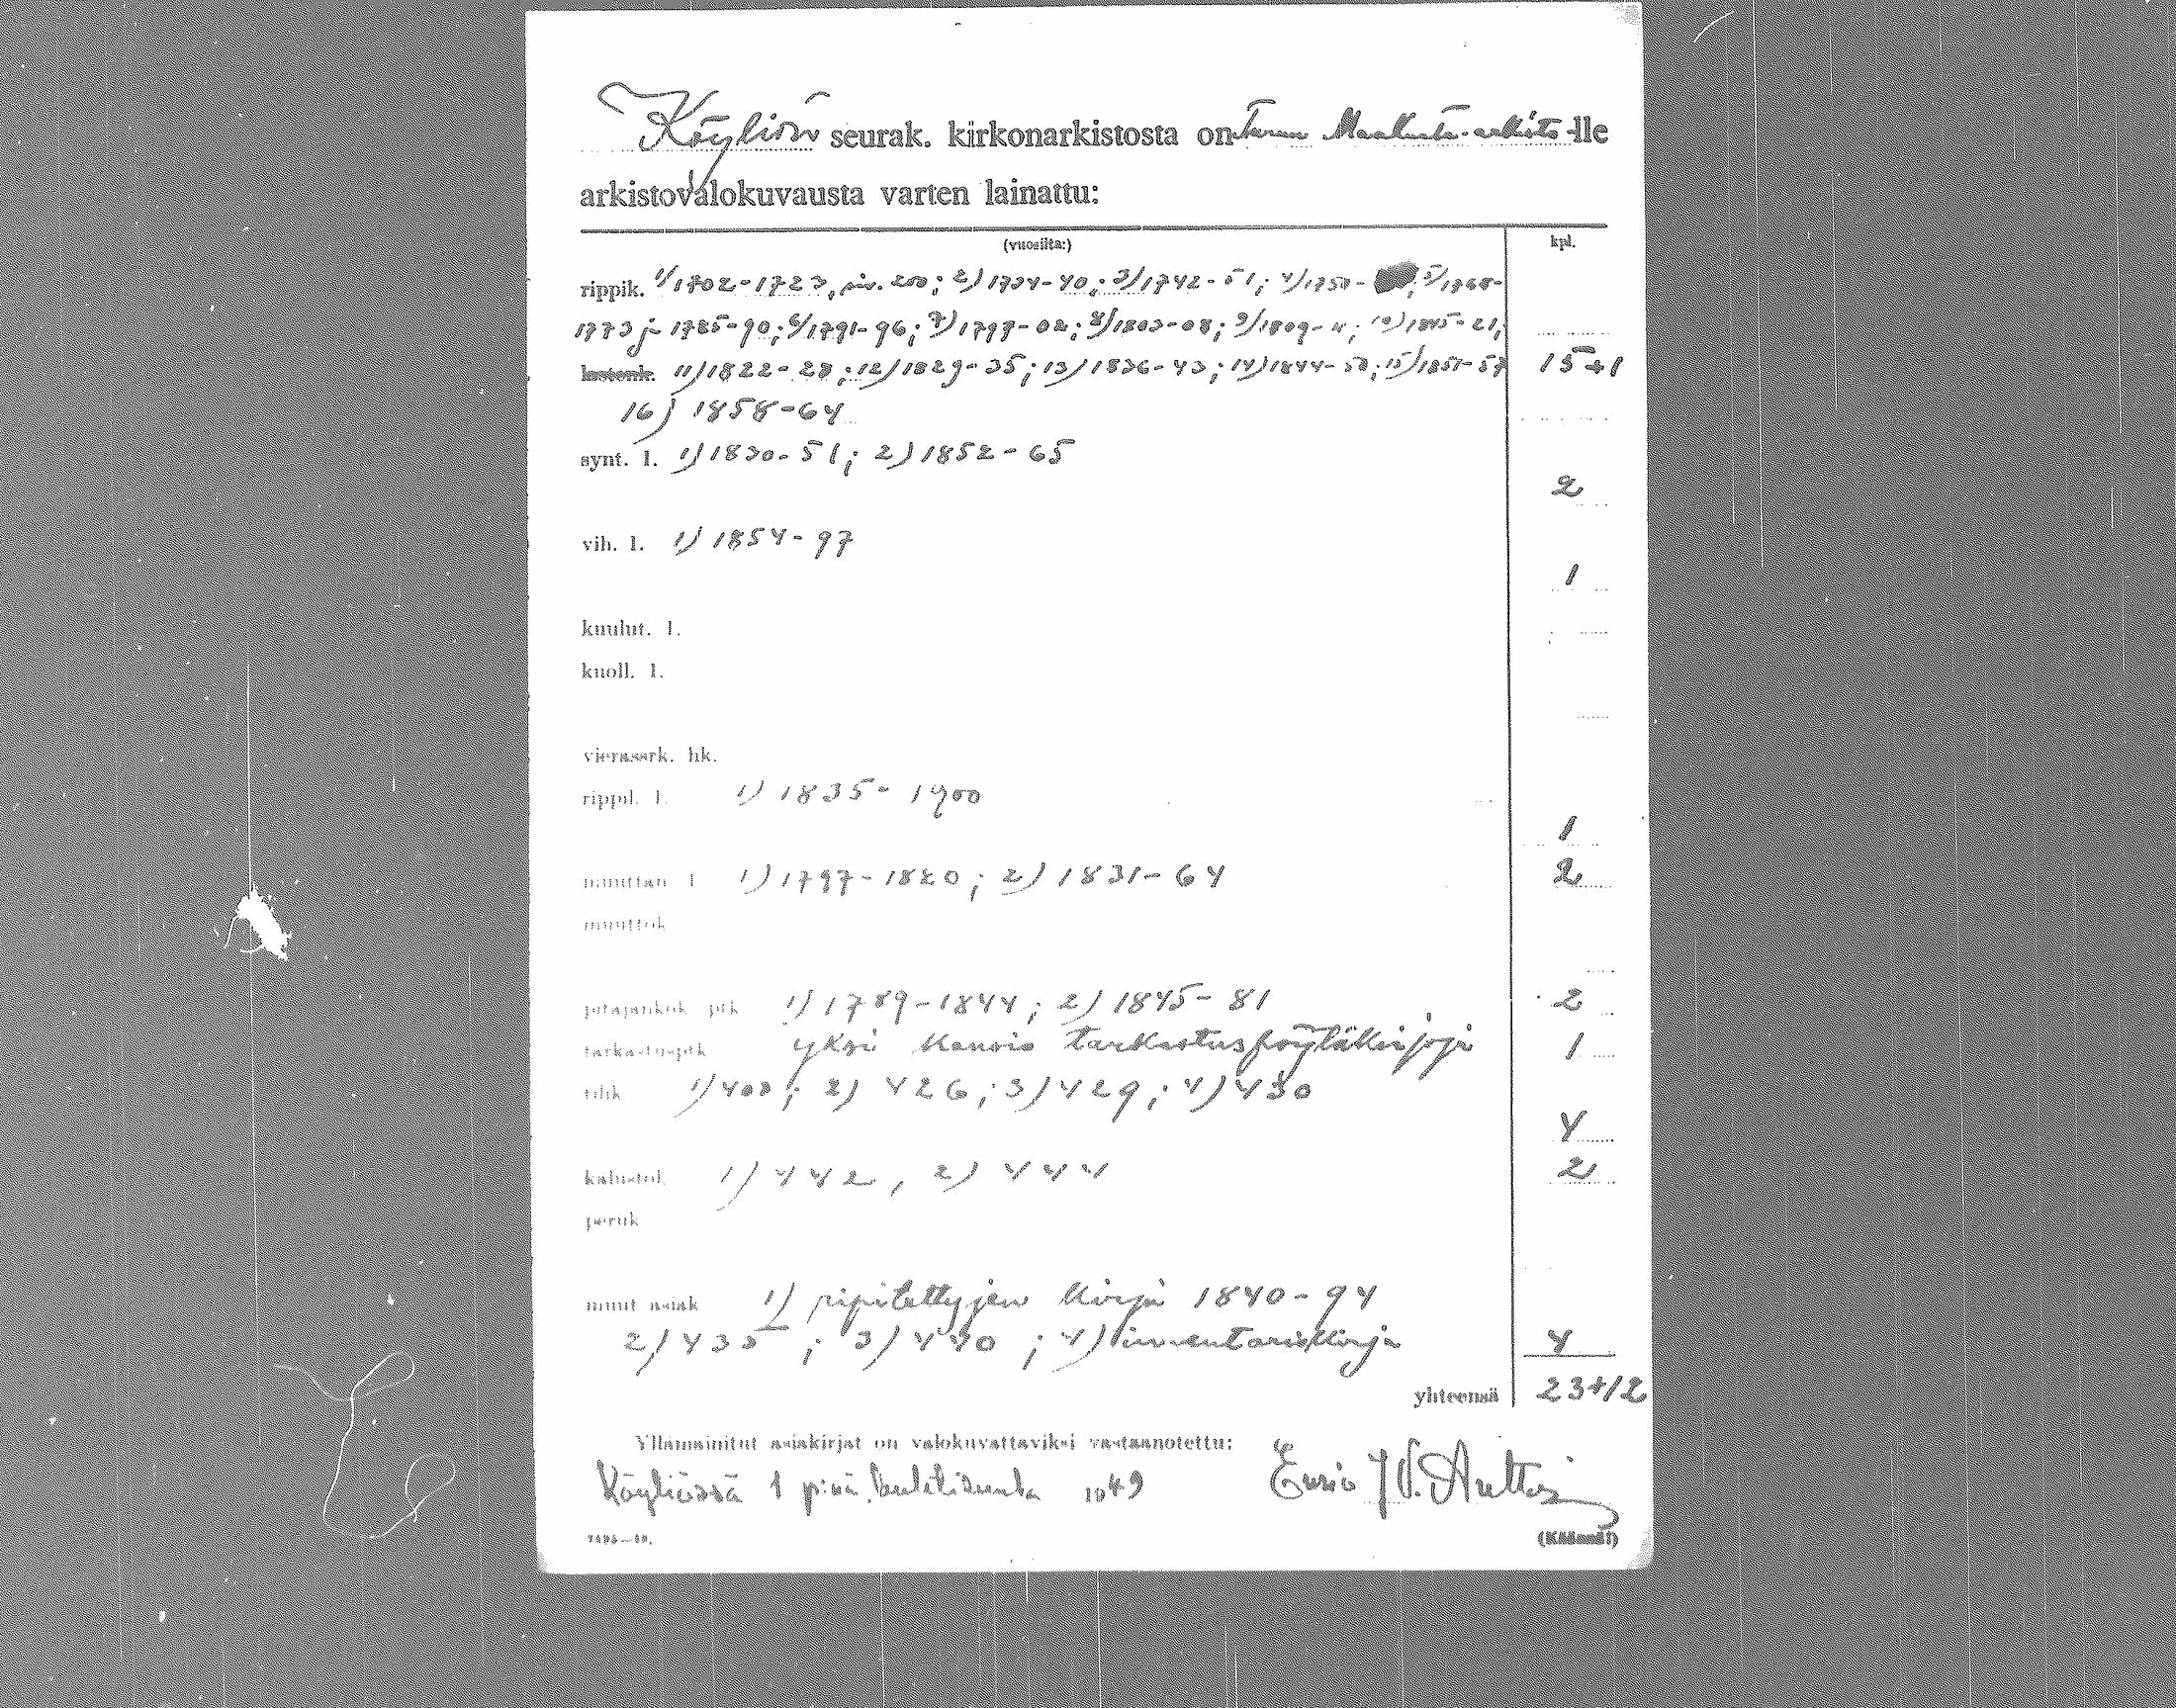 Köyliön seurak. kirkonarkistosta on Turun Maakunta-arkisto-lle
arkistovalokuvausta varten lainattu:
(vuosilta:) kpl.
rippik. 1/1702-1723, siv. 200; 2) 1734-40; 3) 1742-51; 4) 1750- 5) 1768-
1773 j 1785-90; 6/1791-96; 7) 1797-02; 8/1803-08; 9/1809-14; 10) 1815-21;
lastenk. 11) 1822-28; 12) 1829-35; 13) 1836-43; 14) 1844-50; 15) 1851-57 15+1
16) 1858-64
synt. l. 1) 1830-51; 2) 1852-65
2
vih. l. 1) 1854-97
1
kuulut. l.
kuoll. l.
vierassrk. hk.
rippil. l. 1) 1835-1900
1
muuttan. l. 1) 1797-1820; 2) 1831-64 2
muuttok.
pitäjänkok. ptk. 1) 1789-1844; 2) 1845-81 2
tarkastusptk. yksi kansio tarkastuspöytäkirjoja 1
tilik. 1) 400; 2) 426; 3) 429; 4) 430
4
kalustol. 1) 442, 2) 444 2
peruk.
muut asiak. 1) ripitettyjen kirja 1840-94
2) 435; 3) 440; 4) inventariokirja 4
yhteensä 23+12
Yllämainitut asiakirjat on valokuvattaviksi vastaanotettu:
Köyliössä 1 p:nä huhtikuuta 1949 J. V. Anttos
(Käännä!)